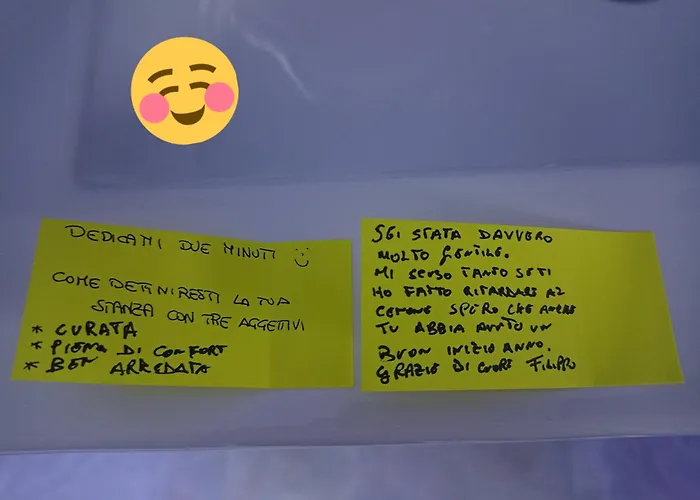 DEDICAMI DUE MINUTI :)
COME DEFINIRESTI LA TUA
STANZA CON TRE AGGETTIVI
* CURATA
* PIENA DI COMFORT
* BEN ARREDATA
SEI STATA DAVVERO
MOLTO GENTILE.
MI SCUSO TANTO SE TI
HO FATTO RITARDARE AL
COMUNE SPERO CHE ANCHE
TU ABBIA AVUTO UN
BUON INIZIO ANNO.
GRAZIE DI CUORE FILIPPO